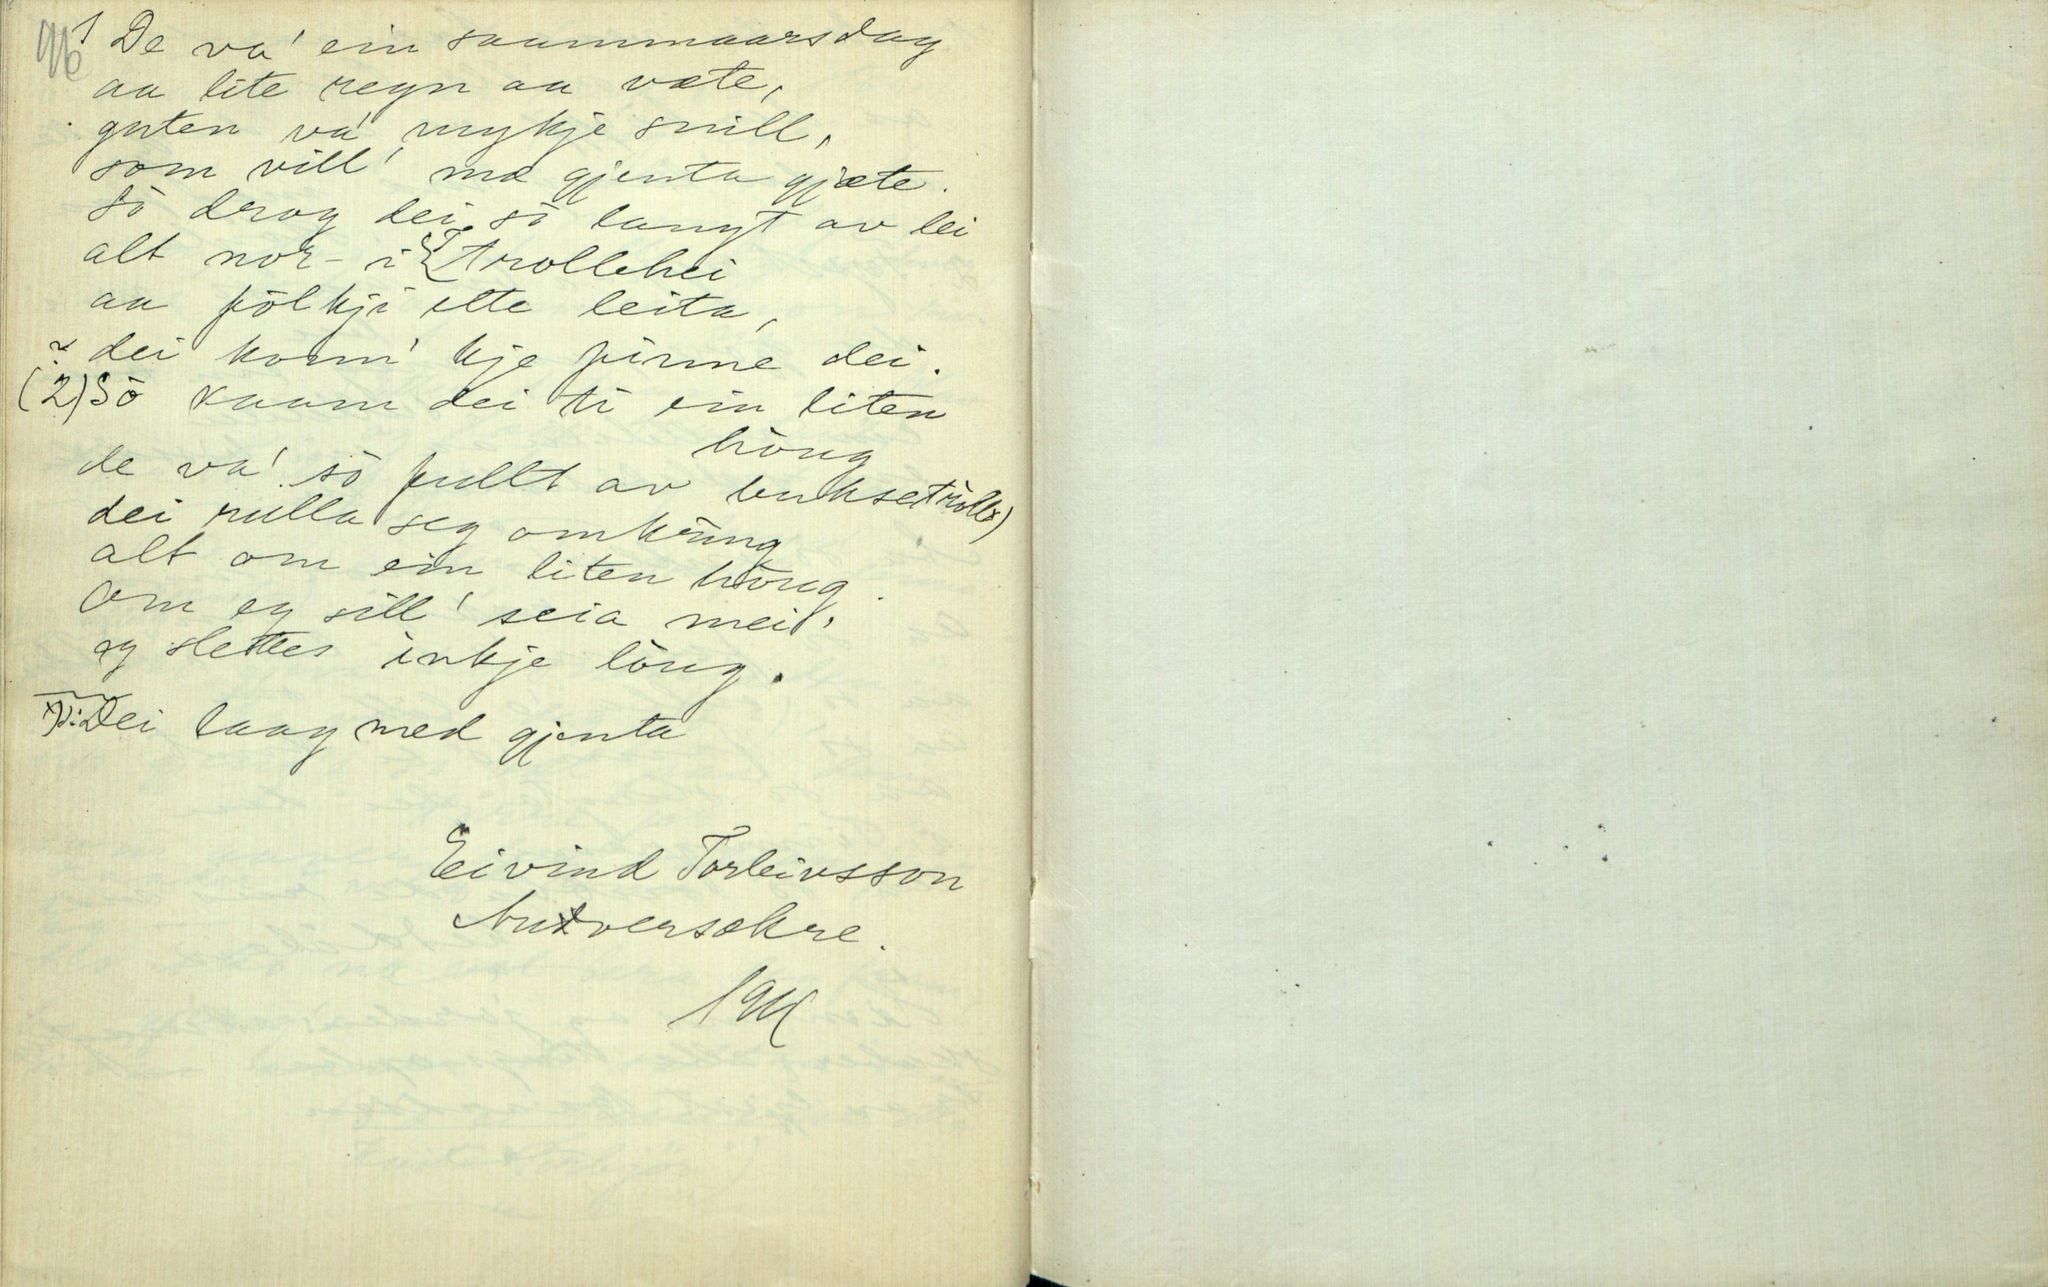 96
1 De va' ein saummaarsdag
aa lite regn aa væte,
guten va' mykje snill,
som vill' mæ gjenta gjæte.
Sò drog dei sò langt av lei
alt nor- i Trollehei
aa fòlkji ette leita,
dei kom' kje finne dei.
(2) Sò kaam dei ti ein liten
hòug
de va' sò fullt av buksetròll x)
dei rulla seg omkring
alt om ein liten hòug.
Om eg sill' seia mei,
eg slettes inkje lòug.
x) Dei laag med gjenta
Eivind Torleivsson
1911